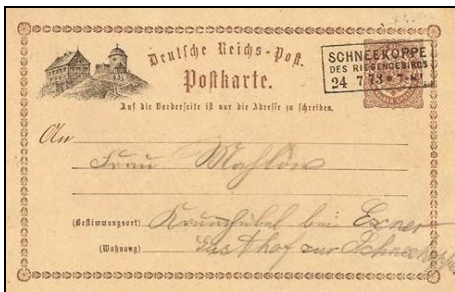 Deutsche Reichs-Post.
Postkarte.
SCHNEEKOPPE
DES RIESENGEBIRGS
24 7 73
Auf die Vorderseite ist nur die Adresse zu schreiben.
An
Frau Mahlow
(Bestimmungsort) Krummhübel bei Exner
(Wohnung) Gasthof zur Schneekoppe